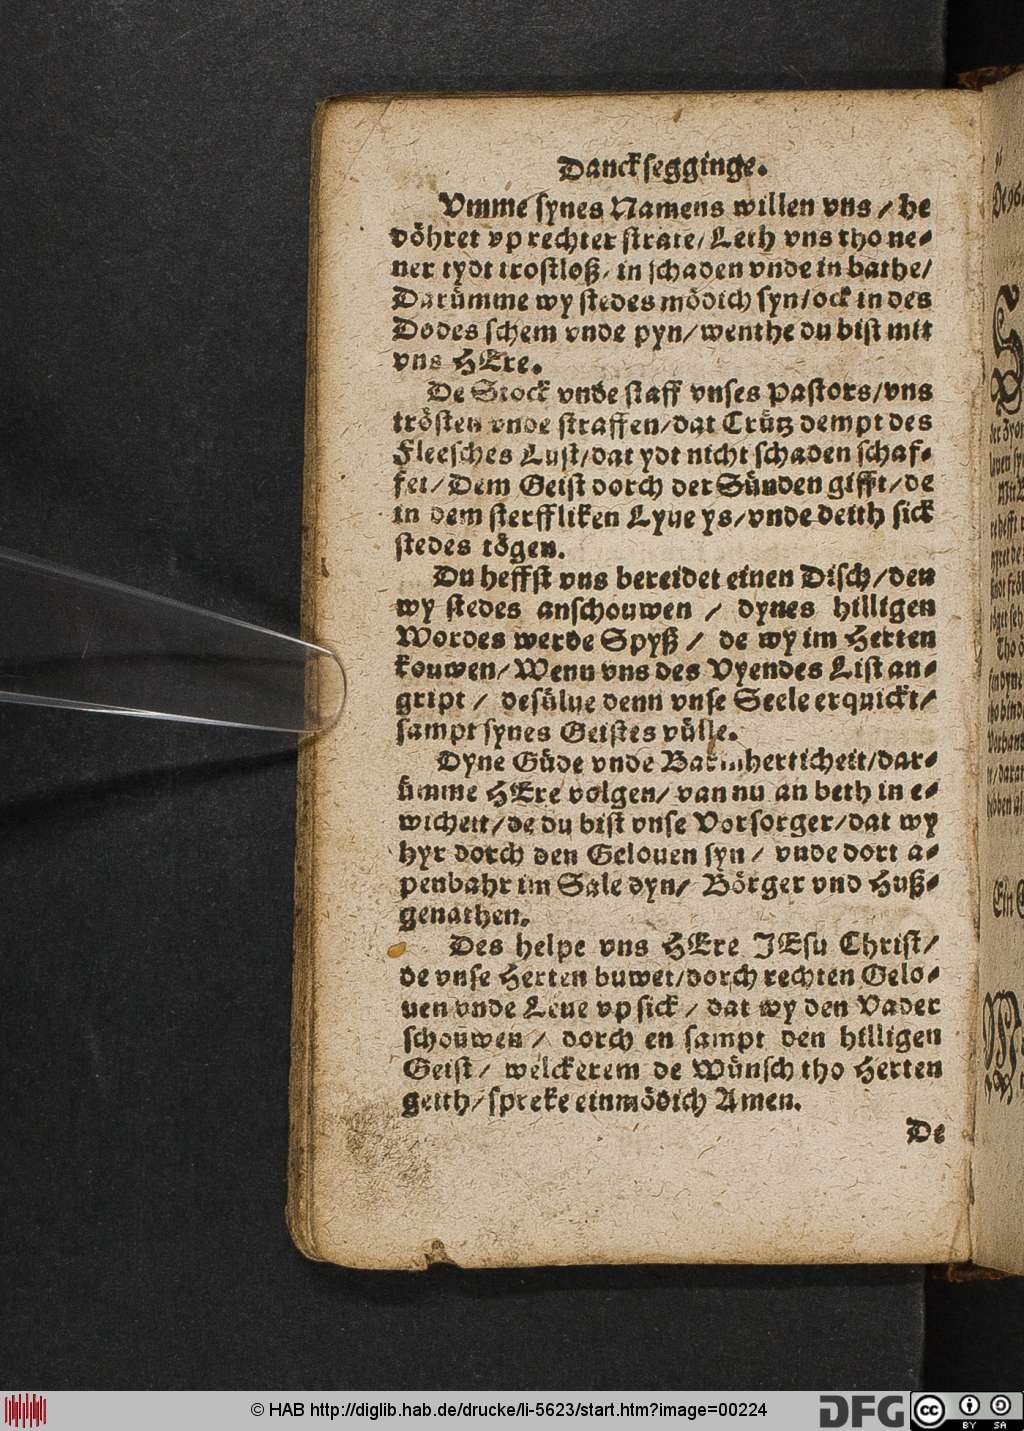 Danckſegginge.
Vmme ſynes Namens willen vns / he
vöhret vp rechter ſtrate / Leth vns tho ne-
ner tydt troſtloß / in ſchaden vnde in bathe /
Darümme wy ſtedes mödich ſyn / ock in des
Dodes ſchem vnde pyn / wenthe du biſt mit
vns HEre.
De Stock vnde ſtaff vnſes Paſtors / vns
tröſten vnde ſtraffen / dat Crütz dempt des
Fleeſches Luſt / dat ydt nicht ſchaden ſchaf-
fet / Dem Geiſt dorch der Sünden gifft / de
in dem ſterffliken Lyue ys / vnde deith ſick
ſtedes tögen.
Du heffſt vns bereidet einen Diſch / den
wy ſtedes anſchouwen / dynes hilligen
Wordes werde Spyß / de wy im Herten
kouwen / Wenn vns des Vyendes Liſt an-
gript / deſülue denn vnſe Seele erquickt /
ſampt ſynes Geiſtes vülle.
Dyne Güde vnde Barmherticheit / dar-
ümme HEre volgen / van nu an beth in e-
wicheit / de du biſt vnſe Vorſorger / dat wy
hyr dorch den Gelouen ſyn / vnde dort a-
penbahr im Sale dyn / Börger vnd Huß-
genathen.
Des helpe vns HEre JEſu Chriſt /
de vnſe Herten buwet / dorch rechten Gelo-
uen vnde Leue vp ſick / dat wy den Vader
ſchouwen / dorch en ſampt den hilligen
Geiſt / welckerem de Wünſch tho Herten
geith / ſpreke einmödich Amen.
De
© HAB http://diglib.hab.de/drucke/li-5623/start.htm?image=00224
DFG
cc BY SA